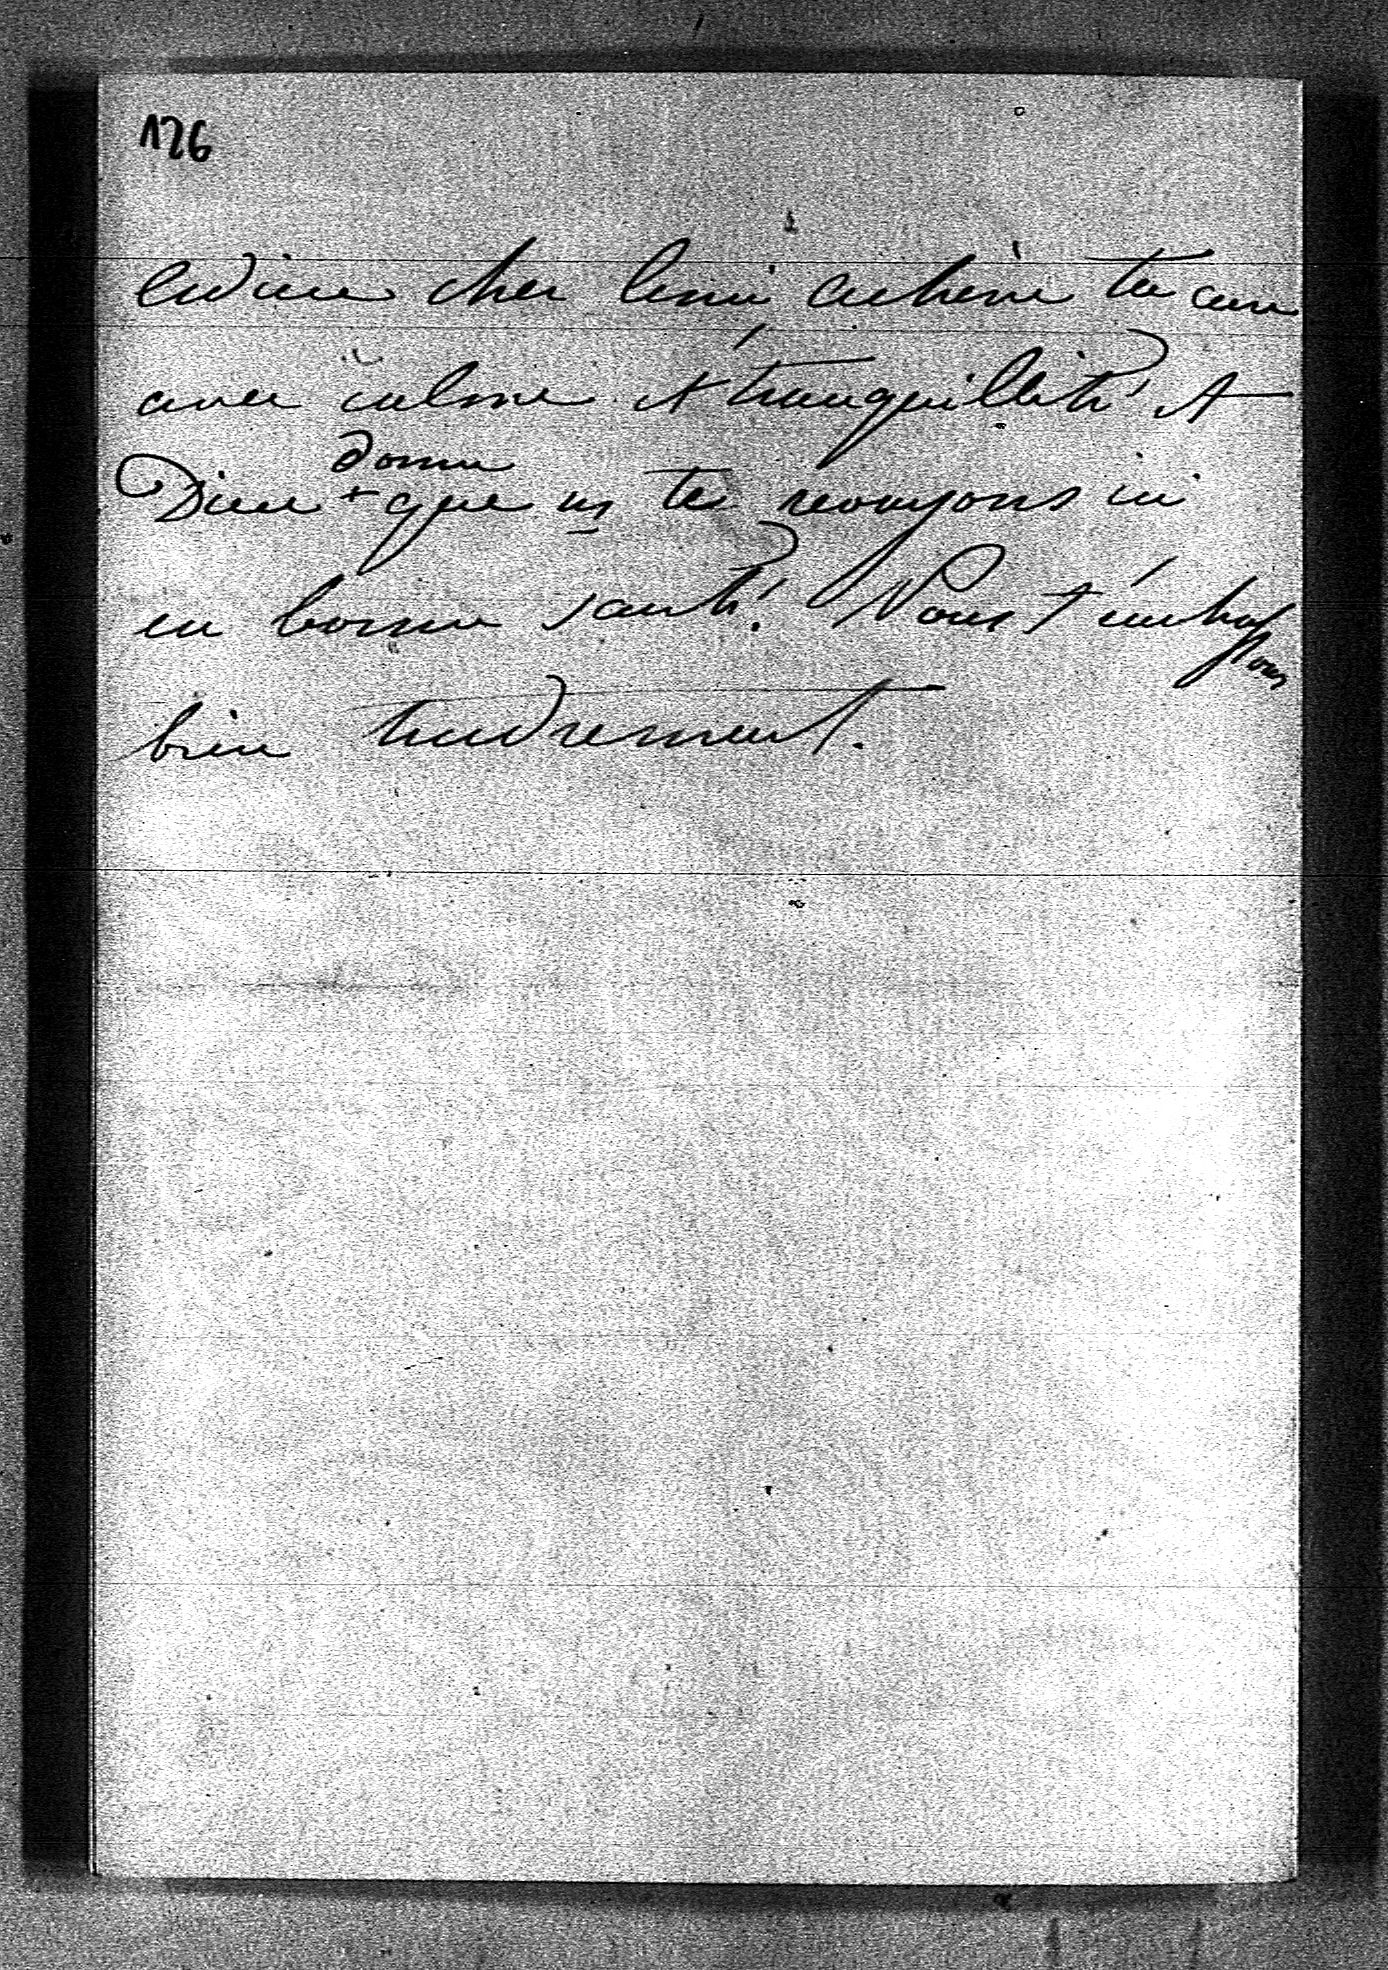 126
Adieu cher Ami, achève ta cure
avec calme et tranquillité et
donne
Dieu + que ns te revoyons ici
en bonne santé! Nous t'embras
sons
bien tendrement.